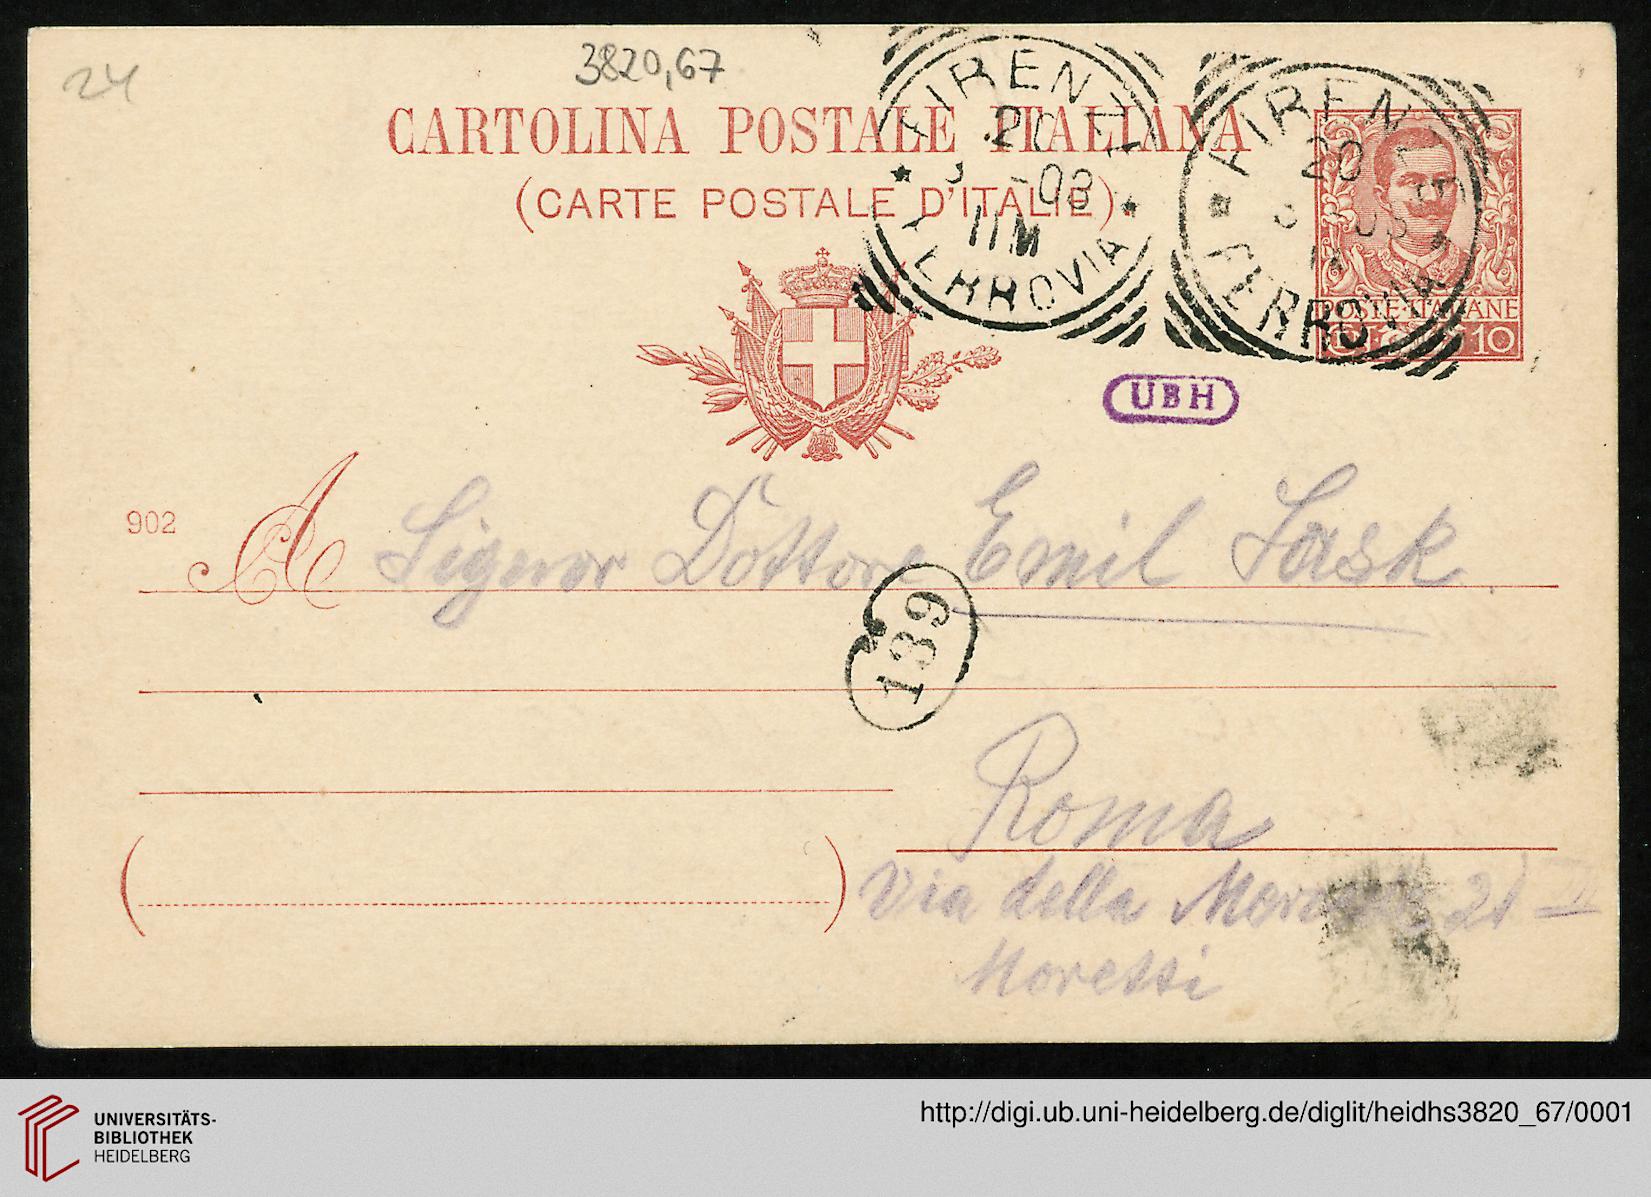 24
3820,67
CARTOLINA POSTALE ITALIANA
(CARTE POSTALE D'ITALIE)
FIRENZE
20
-03
11M
FERROVIA
FIRENZE
20
FERROVIA
POSTE ITALIANE
10
UBH
902
A Signor Dottore Emil Lask
139
Roma
Via della 21 II
Moretti
UNIVERSITÄTS-
BIBLIOTHEK
HEIDELBERG
http://digi.ub.uni-heidelberg.de/diglit/heidhs3820_67/0001